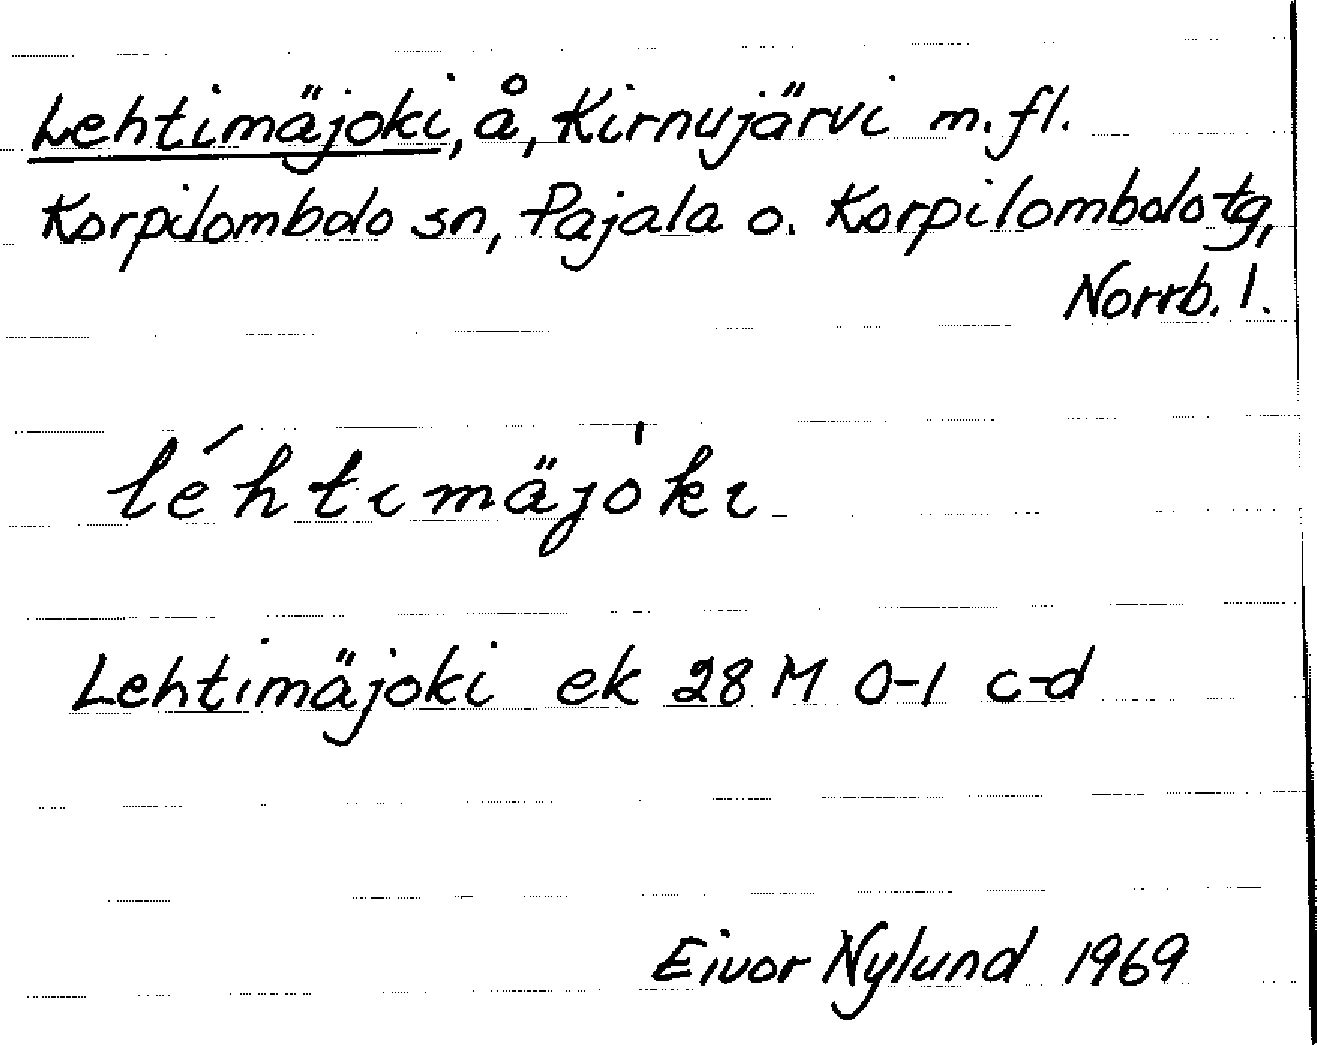 Lehtimäjoki, å, Kirnujärvi m.fl.
Korpilombolo sn, Pajala o. Korpilombolo tg,
Norrb. l.
léhtimäjo̍ki
Lehtimäjoki ek 28 M 0-1 c-d
Eivor Nylund 1969